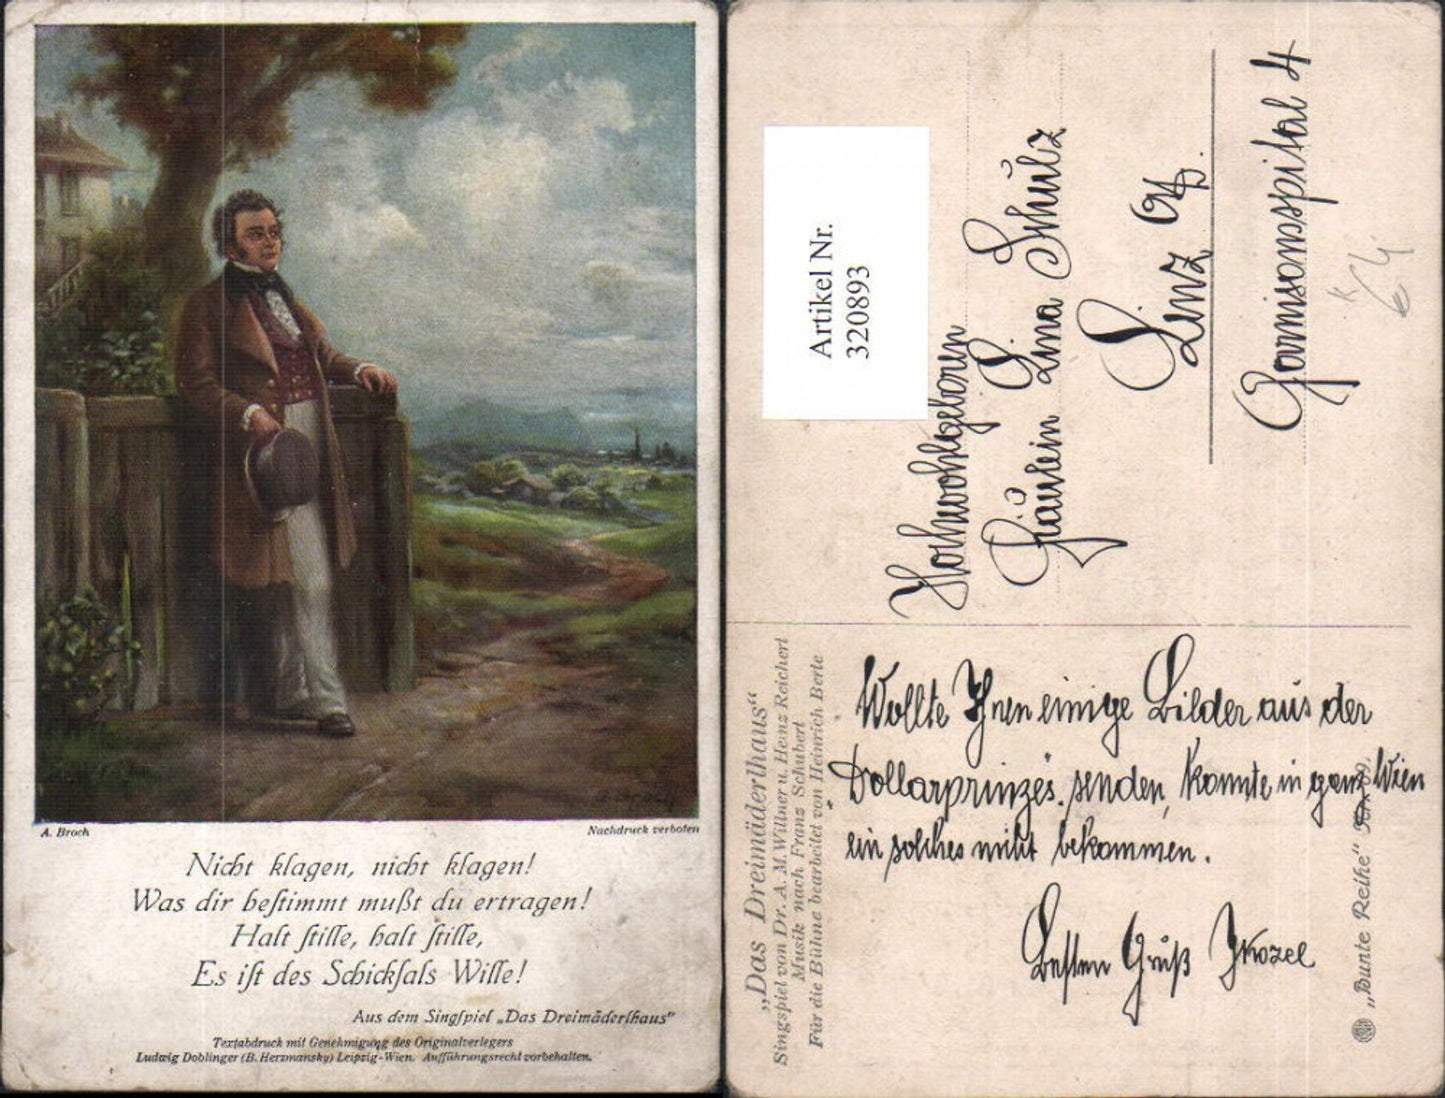 A. Broch
Nachdruck verboten
Nicht klagen, nicht klagen!
Was dir bestimmt mußt du ertragen!
Halt stille, halt stille,
Es ist des Schicksals Wille!
Aus dem Singspiel „Das Dreimäderlhaus“
Textabdruck mit Genehmigung des Originalverlegers
Ludwig Doblinger (B. Herzmansky) Leipzig-Wien. Aufführungsrecht vorbehalten.
Artikel Nr.
320893
Hochwohlgeboren
Fräulein Lina Schulz
Linz
Garnisonsspital 4
„Das Dreimäderlhaus“
Singspiel von Dr. A. M. Willner u. Heinz Reichert
Musik nach Franz Schubert
Für die Bühne bearbeitet von Heinrich Berte
Wollte Ihnen einige Bilder aus der
Dollarprinzes. senden, konnte in ganz Wien
ein solches nicht bekommen.
Besten Gruß
„Bunte Reihe“